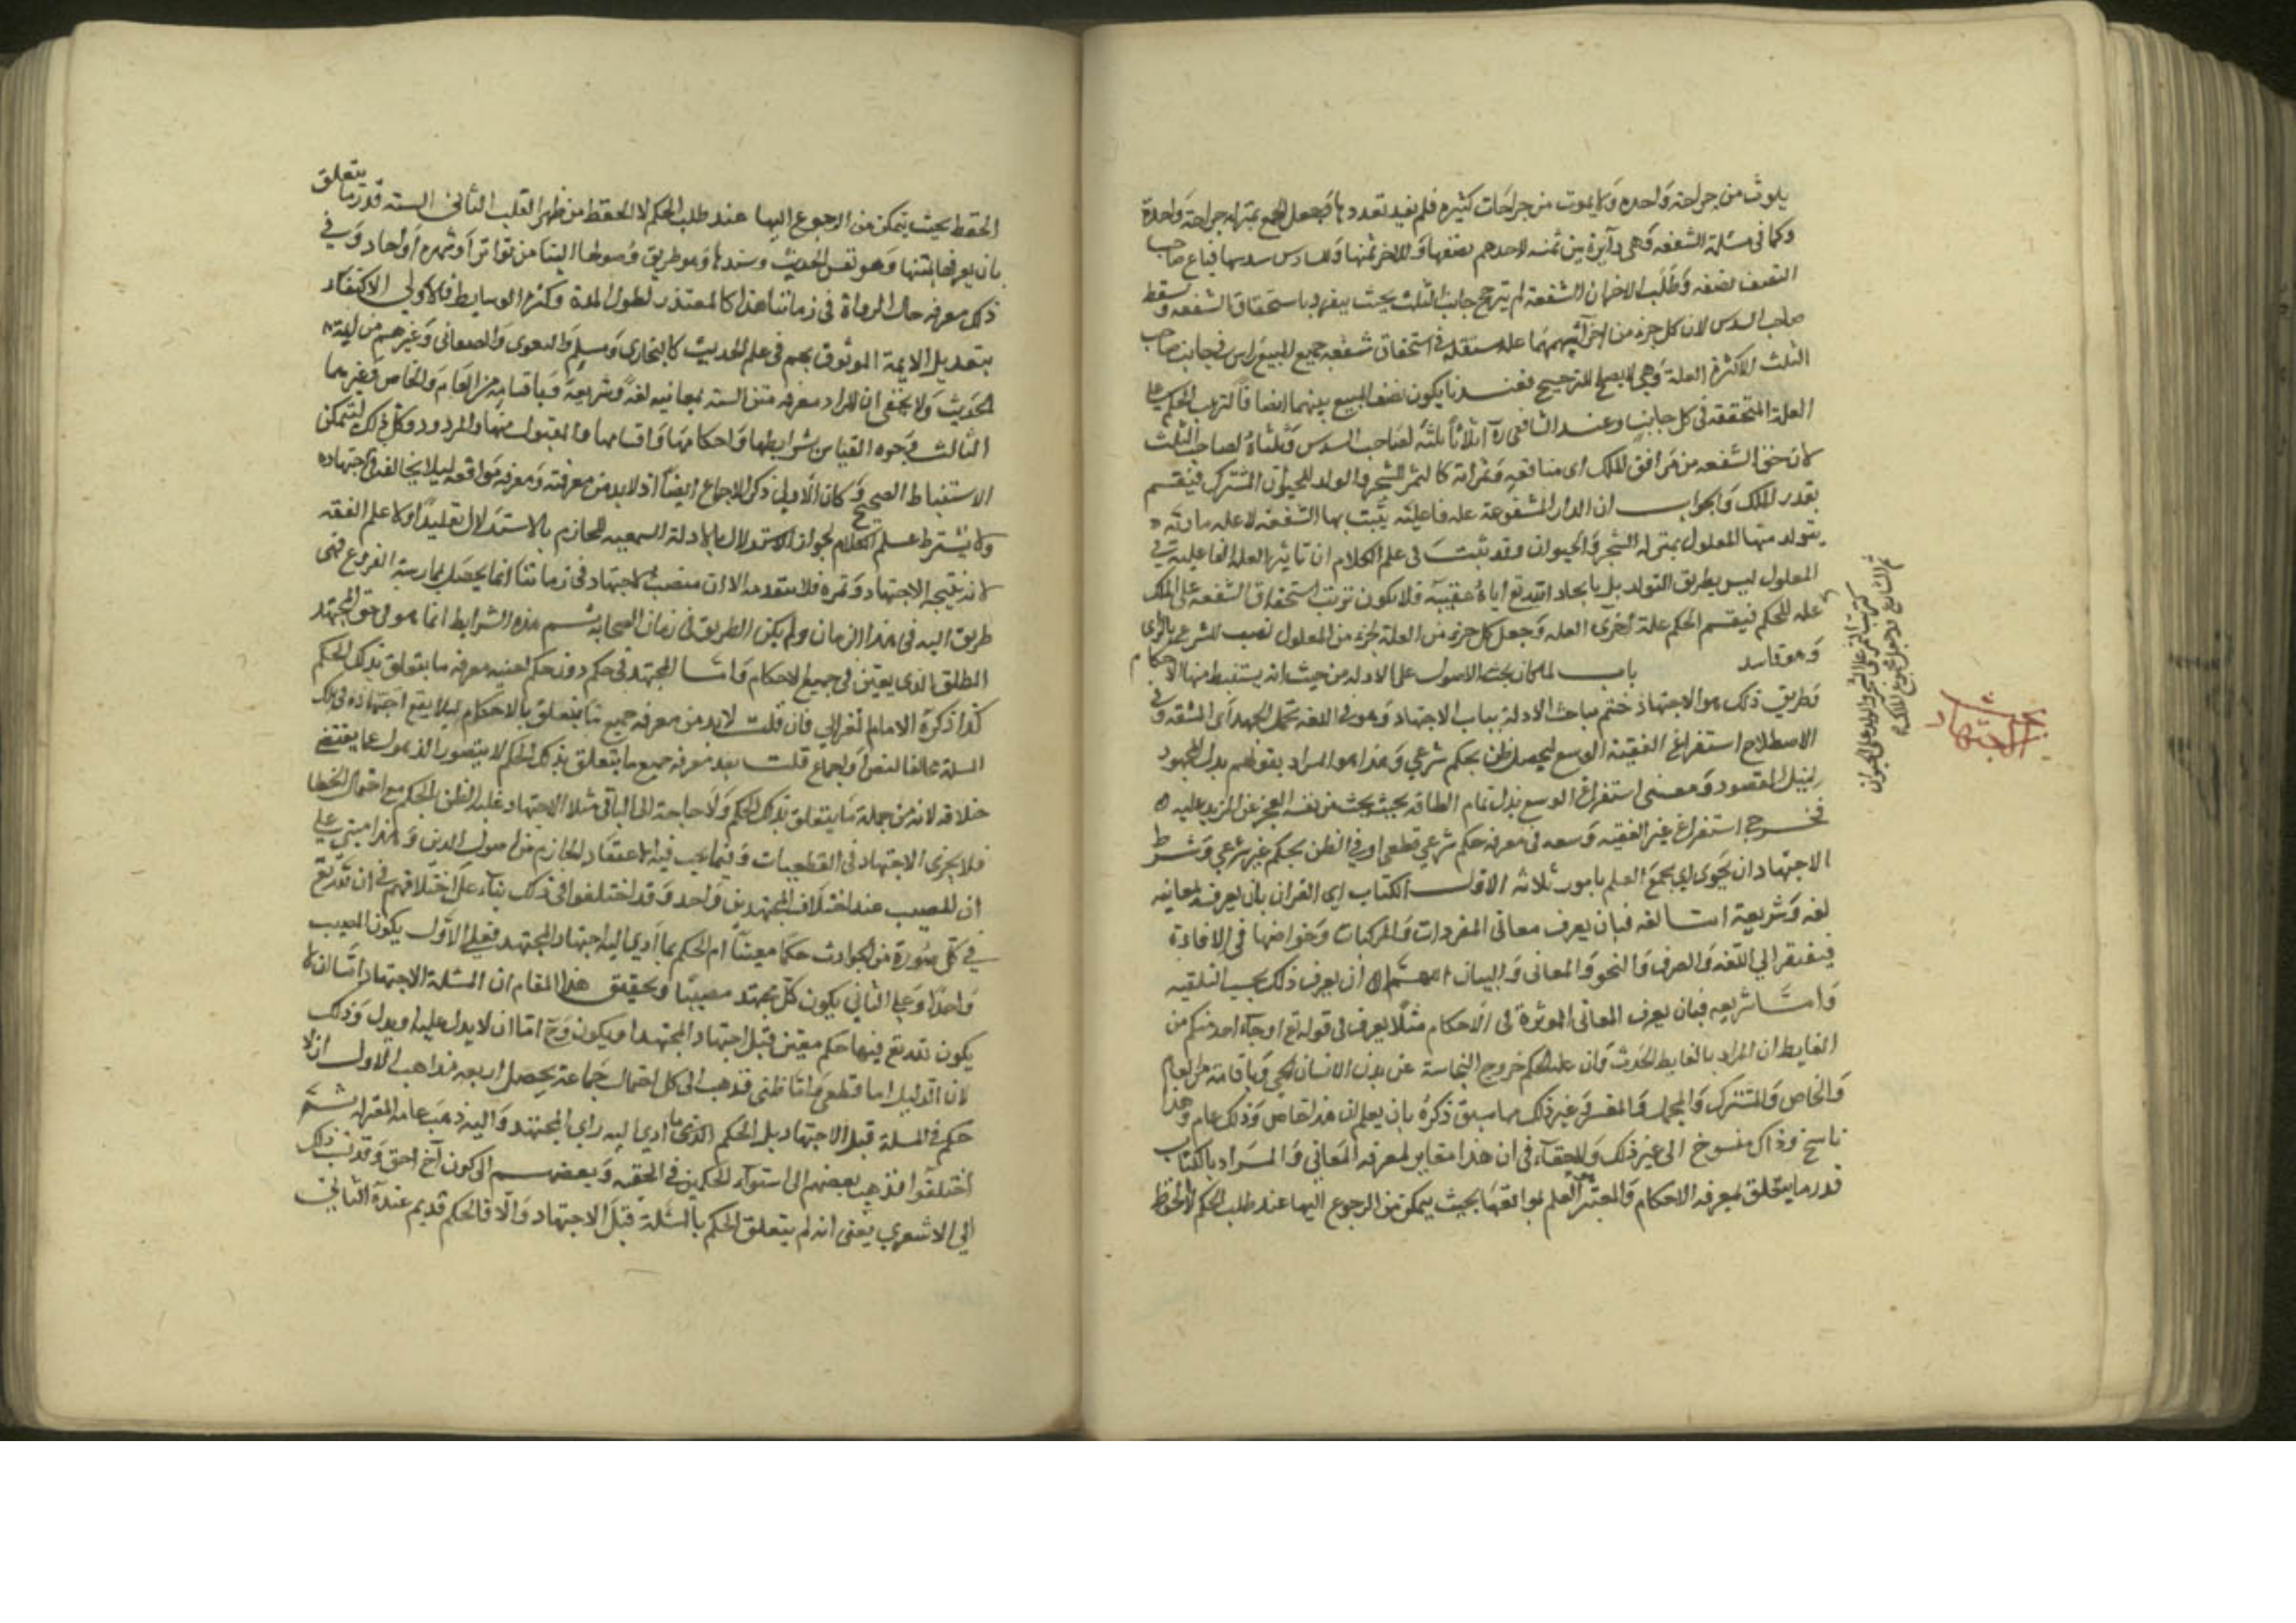 يموت من جراحة واحدة ولا يموت من جراحات كثيرة فلم يفد تعددها فجعل الجميع بمنزلة جراحة واحدة
وكما في مسئلة الشفعة وهي دايرة بين ثلثة لاحدهم نصفها وللاخر ثلثها وللسادس سدسها فباع صاحب
النصف نصفه وطلب الاخران الشفعة لم يترجح جانب الثلث بحيث ينفرد باستحقاق الشفعة ويسقط
صاحب السدس لان كل جزء من اجزآئهما علة مستقلة في استحقاق شفعة جميع المبيع وليس في جانب صاحب
الثلث الا كثرة العلة وهي لا يصلح للترجيح فعندنا يكون نصف المبيع بينهما انصافا لترتب الحكم على
العلة المتحققة في كل جانب وعند الشافعي رح اثلاثا ثلثه لصاحب السدس وثلثاه لصاحب الثلث
لان حق الشفعة من مرافق الملك اى منافعه وثمراته كالثمر للشجر والولد للحيوان المشترك فيقسم
بقدر الملك والجواب ان الدار المشفوعة علة فاعلية يثبت بها الشفعة لا علة مادية
يتولد منها المعلول بمنزلة الشجر والحيوان وقد ثبت في علم الكلام ان تاثير العلة الفاعلية في
المعلول ليس بطريق التولد بل بايجاد الله تع اياه عقيبه فلا يكون ترتب استحقاق الشفعة على الملك
علة للحكم فيقسم الحكم علة اخرى العلة وجعل كل جزء من العلة لجزء من المعلول نصب للشرع بالراى
وهو فاسد باب لما كان بحث الاصول على الادلة من حيث انه يستنبط منها الاحكام
وطريق ذلك هو الاجتهاد ختم مباحث الادلة بباب الاجتهاد وهو في اللغة تحمل الجهد اى المشقة وفي
الاصطلاح استفراغ الفقيه الوسع ليحصل ظن بحكم شرعي وهذا هو المراد بقولهم بذل المجهود
لنيل المقصود ومعنى استفراغ الوسع بذل تمام الطاقة بحيث يحس من نفسه العجز عن المزيد عليه
فخرج استفراغ غير الفقيه وسعه في معرفة حكم شرعي قطعي او في الظن بحكم غير شرعي وشرط
الاجتهاد ان يحوى اي يجمع العلم بامور ثلاثة الاول الكتاب اى القران بان يعرفه بمعانيه
لغة وشريعة امـا لغة فبان يعرف معاني المفردات والمركبات وخواصها في الافادة
فيفتقر الي اللغة والصرف والنحو والمعاني والبيان اللهم الا ان يعرف ذلك بحسب السليقة
وامـا شريعة فبان يعرف المعاني الموثرة في الاحكام مثلا يعرف في قوله تع او جآء احد منكم من
الغايط ان المراد بالغايط الحدث وان علة الحكم خروج النجاسة عن بدن الانسان الحي وباقسامه من العام
والخاص والمشترك والمجمل والمفسر وغير ذلك مما سبق ذكره بان يعلم ان هذا خاص وذلك عام وهذا
ناسخ وذاك منسوخ الى غير ذلك ولا خفآء في ان هذا مغاير لمعرفة المعاني والمـراد بالكتاب
قدر ما يتعلق بمعرفة الاحكام والمعتبر هو العلم بمواقعها بحيث يتمكن من الرجوع اليها عند طلب الحكم لا الحفظ
الاجتهاد
الحفظ بحيث يتمكن من الرجوع اليها عند طلب الحكم لا الحفظ من ظهر القلب الثاني السنة قدر ما يتعلق
بان يعرفها بمتنها وهو نفس الحديث وسندها وهو طريق وصولها الينا من تواتر او شهرة او احاد وفي
ذلك معرفة حال الرواة في زماننا هذا كالمتعذر لطول المدة وكثرة الوسايط فالاولى الاكتفاء
بتعديل الايمة الموثوق بهم في علم الحديث كالبخاري ومسلم والبغوى والصغاني وغيرهم من ايمة
الحديث ولا يخفى ان المراد معرفة متن السنة بمعانيه لغة وشريعة وباقسامه من العام والخاص وغيرهما
الثالث وجوه القياس بشرايطها واحكامها واقسامها والمقبول منها والمردود وكل ذلك ليتمكن
الاستنباط الصحيح وكان الاولى ذكر الاجماع ايضا اذ لا بد من معرفته ومعرفة مواقعه ليلا يخالفه في اجتهاده
ولا يشترط علم الكلام لجواز الاستدلال بالادلة السمعية للجازم بالاستدلال تقليدا ولا علم الفقه
لانه نتيجة الاجتهاد وثمرة فلا يتقدمه الا ان منصب الاجتهاد في زماننا انما يحصل بممارسة الفروع فهى
طريق اليه في هذا الزمان ولم يكن الطريق في زمان الصحابة ثـم هذه الشرايط انما هو في حق المجتهد
المطلق الذى يفتى في جميع الاحكام وامـا المجتهد في حكم دون حكم فعليه معرفة ما يتعلق بذلك الحكم
كذا ذكره الامام الغزالي فان قلت لا بد من معرفة جميع ما يتعلق بالاحكام ليلا يقع اجتهاده في تلك
المسئلة مخالفا لنص او اجماع قلت بعد معرفة جميع ما يتعلق بذلك الحكم لا يتصور الذهول عما يقتضى
خلافه لانه من جملة ما يتعلق بذلك الحكم ولا حاجة الى الباقى مثلا الاجتهاد غلبة الظن بالحكم مع احتمال الخطا
فلا يجرى الاجتهاد في القطعيات وفيما يجب فيه الاعتقاد الجازم من اصول الدين وهذا مبني على
ان المصيب عند اختلاف المجتهدين واحد وقد اختلفوا في ذلك بناء على اختلافهم في ان لله تع
في كل صورة من الحوادث حكما معينا ام الحكم بما ادي اليه اجتهاد المجتهد فعلى الاول يكون المصيب
واحدا وعلى الثاني يكون كل مجتهد مصيبا وتحقيق هذا المقام ان المسئلة الاجتهادية اما ان لا
يكون لله تع فيها حكم معين قبل اجتهاد المجتهد او يكون وح اما ان لا يدل عليه او يدل وذلك
لان الدليل اما قطعي واما ظني فذهب الى كل احتمال جماعة يحصل اربعة مذاهب الاول ان لا
حكم في المسئلة قبل الاجتهاد بل الحكم الذى ما ادي اليه راي المجتهد واليه ذهب عامة المعتزلة ثـم
اختلفوا فذهب بعضهم الى استوآء الحكمين في الحقية وبعضهـم الى كون آخ احق وقد نسب ذلك
الي الاشعري يعنى انه لم يتعلق الحكم بالمسئلة قبل الاجتهاد والا فالحكم قديم عنده الثاني